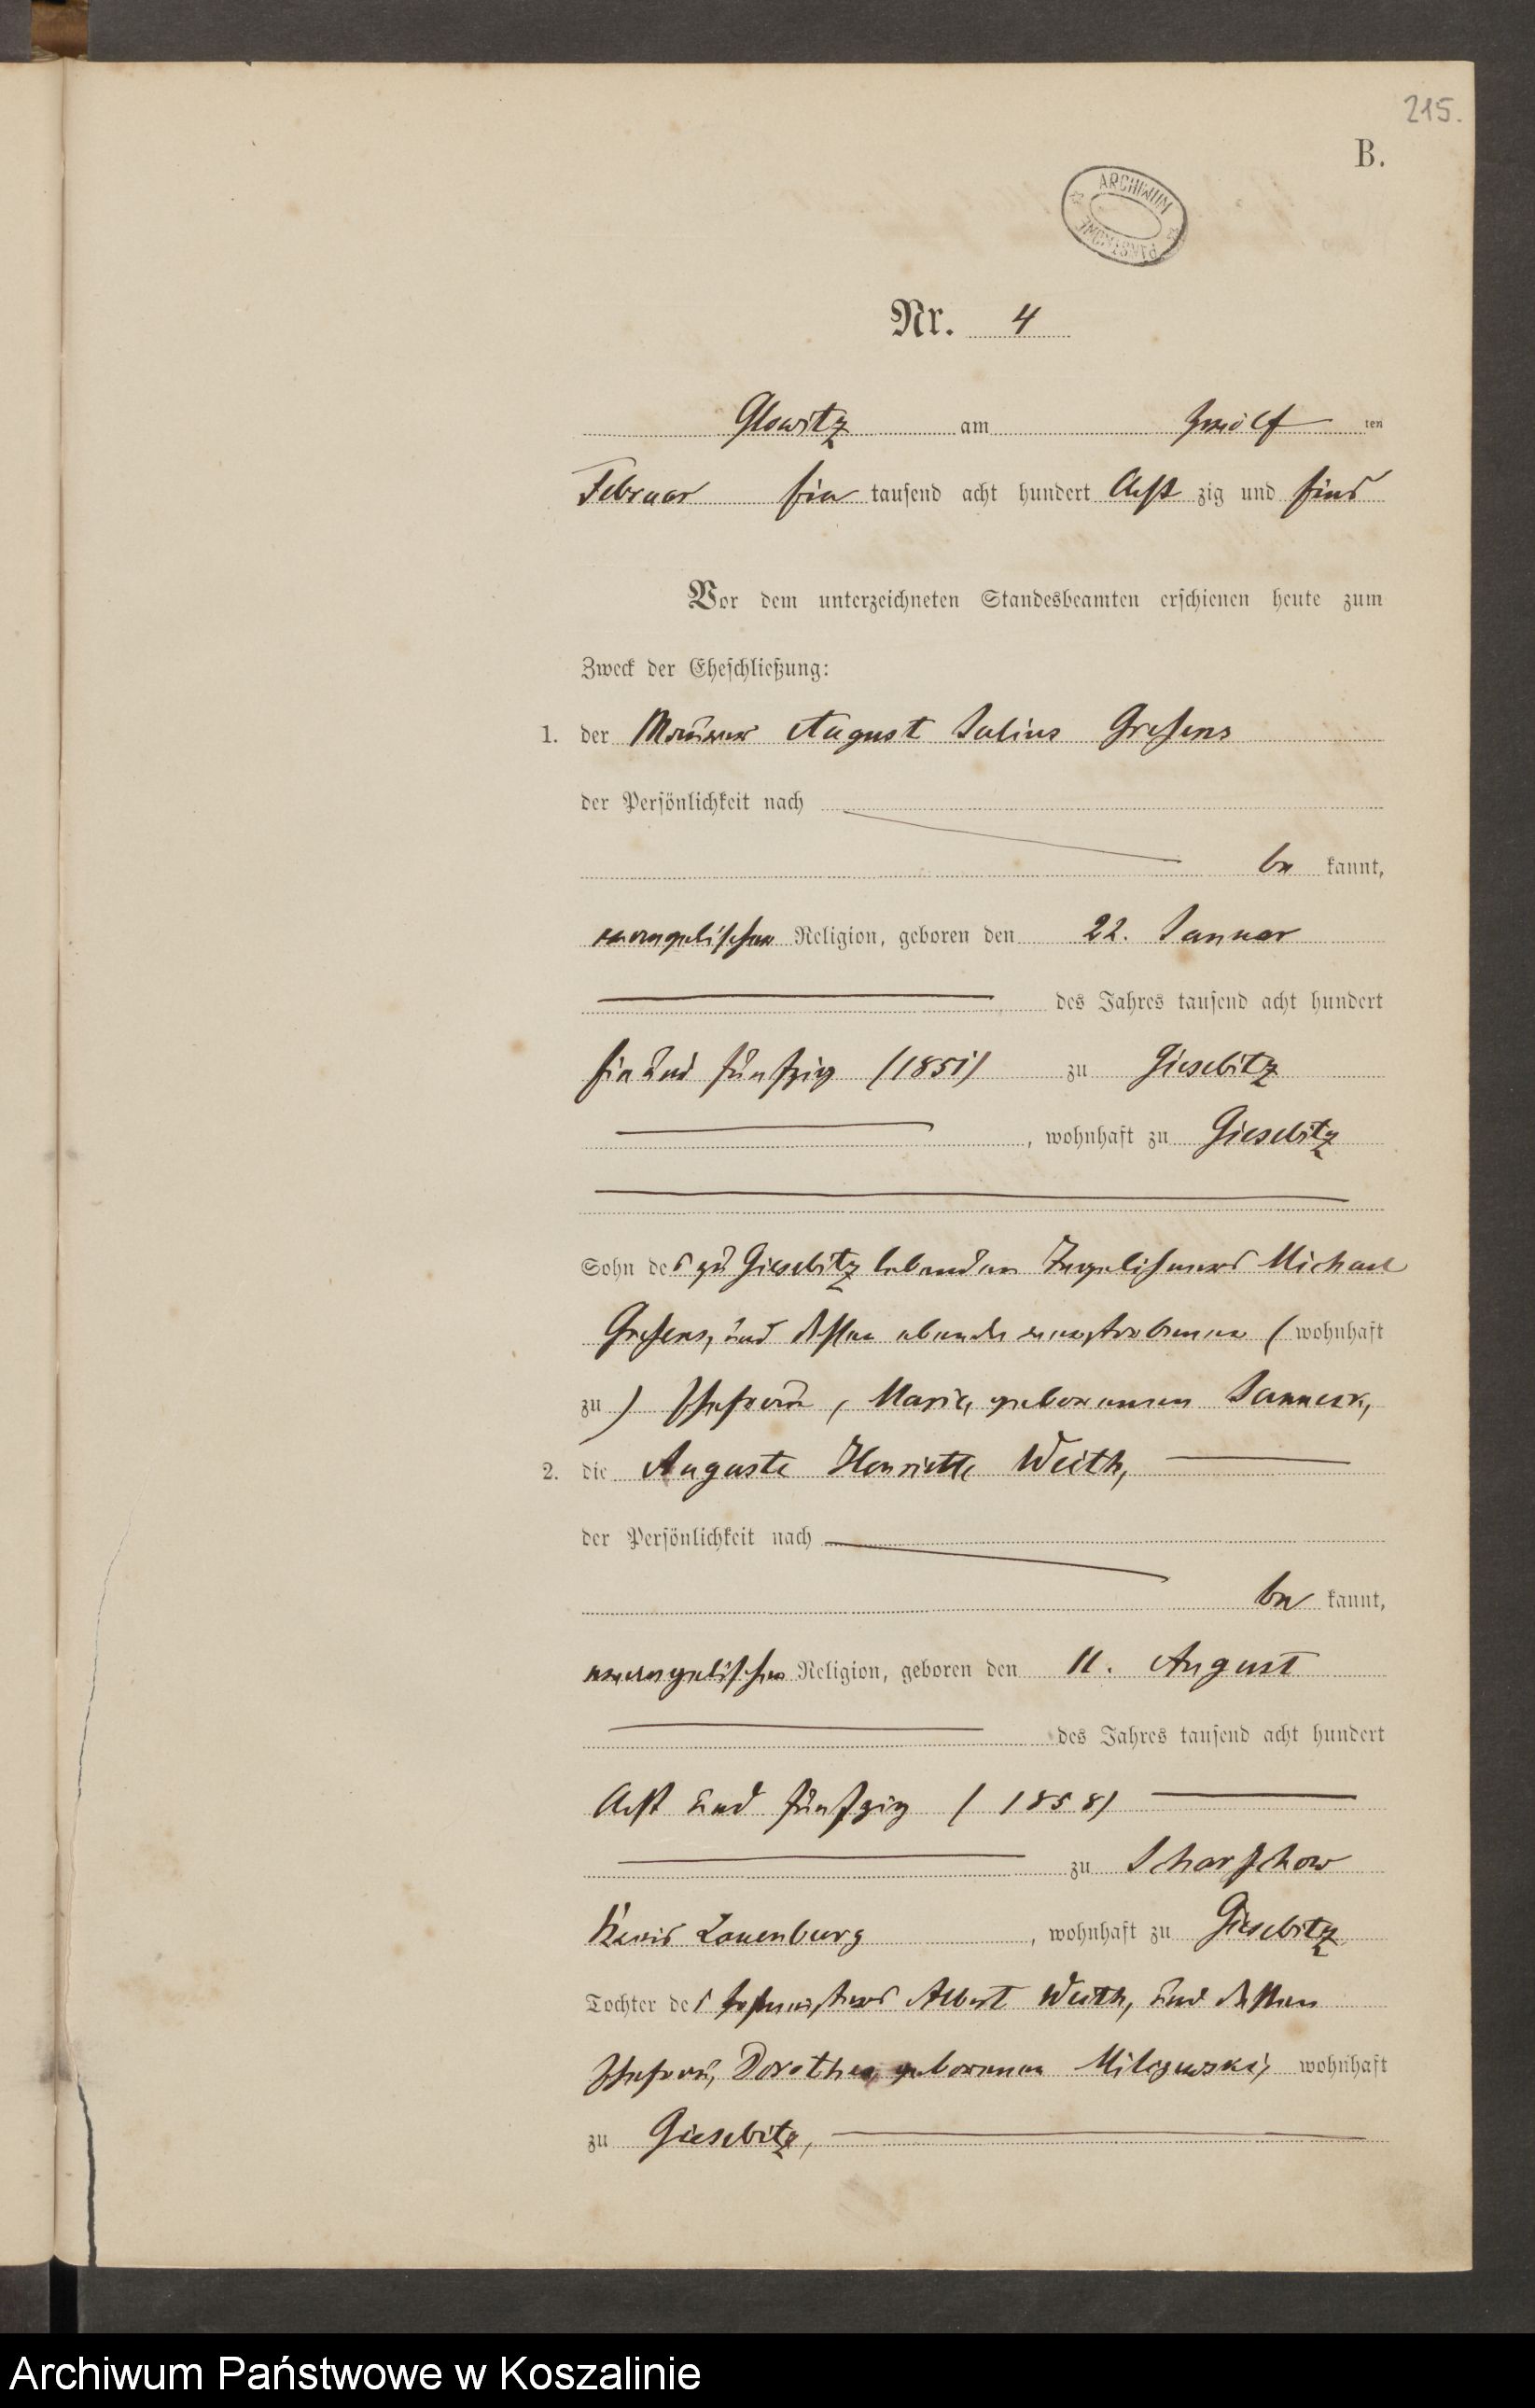 215.
B.
ARCHIWUM PAŃSTWOWE
Nr. 4
Glowitz am zwölf ten
Februar ein tausend acht hundert Acht zig und eins
Vor dem unterzeichneten Standesbeamten erschienen heute zum
Zweck der Eheschließung:
1. der Maurer August Julius Greſens
der Persönlichkeit nach
be kannt,
evangelischer Religion, geboren den 22. Januar
des Jahres tausend acht hundert
ein und fünfzig (1851) zu Giesebitz
, wohnhaft zu Giesebitz
Sohn des zu Giesebitz lebenden Tagelöhners Michael
Greſens, und dessen ebenda verstorbenen (wohnhaft
zu) Ehefrau, Marie, geborenen Janneck,
2. die Auguste Henriette Weith,
der Persönlichkeit nach
be kannt,
evangelischer Religion, geboren den 11. August
des Jahres tausend acht hundert
Acht und fünfzig (1858)
zu Scharschow
Kreis Lauenburg, wohnhaft zu Giesebitz
Tochter des Albert Weith, und dessen
Ehefrau, Dorothea, geborenen Milczewski, wohnhaft
zu Giesebitz,
Archiwum Państwowe w Koszalinie